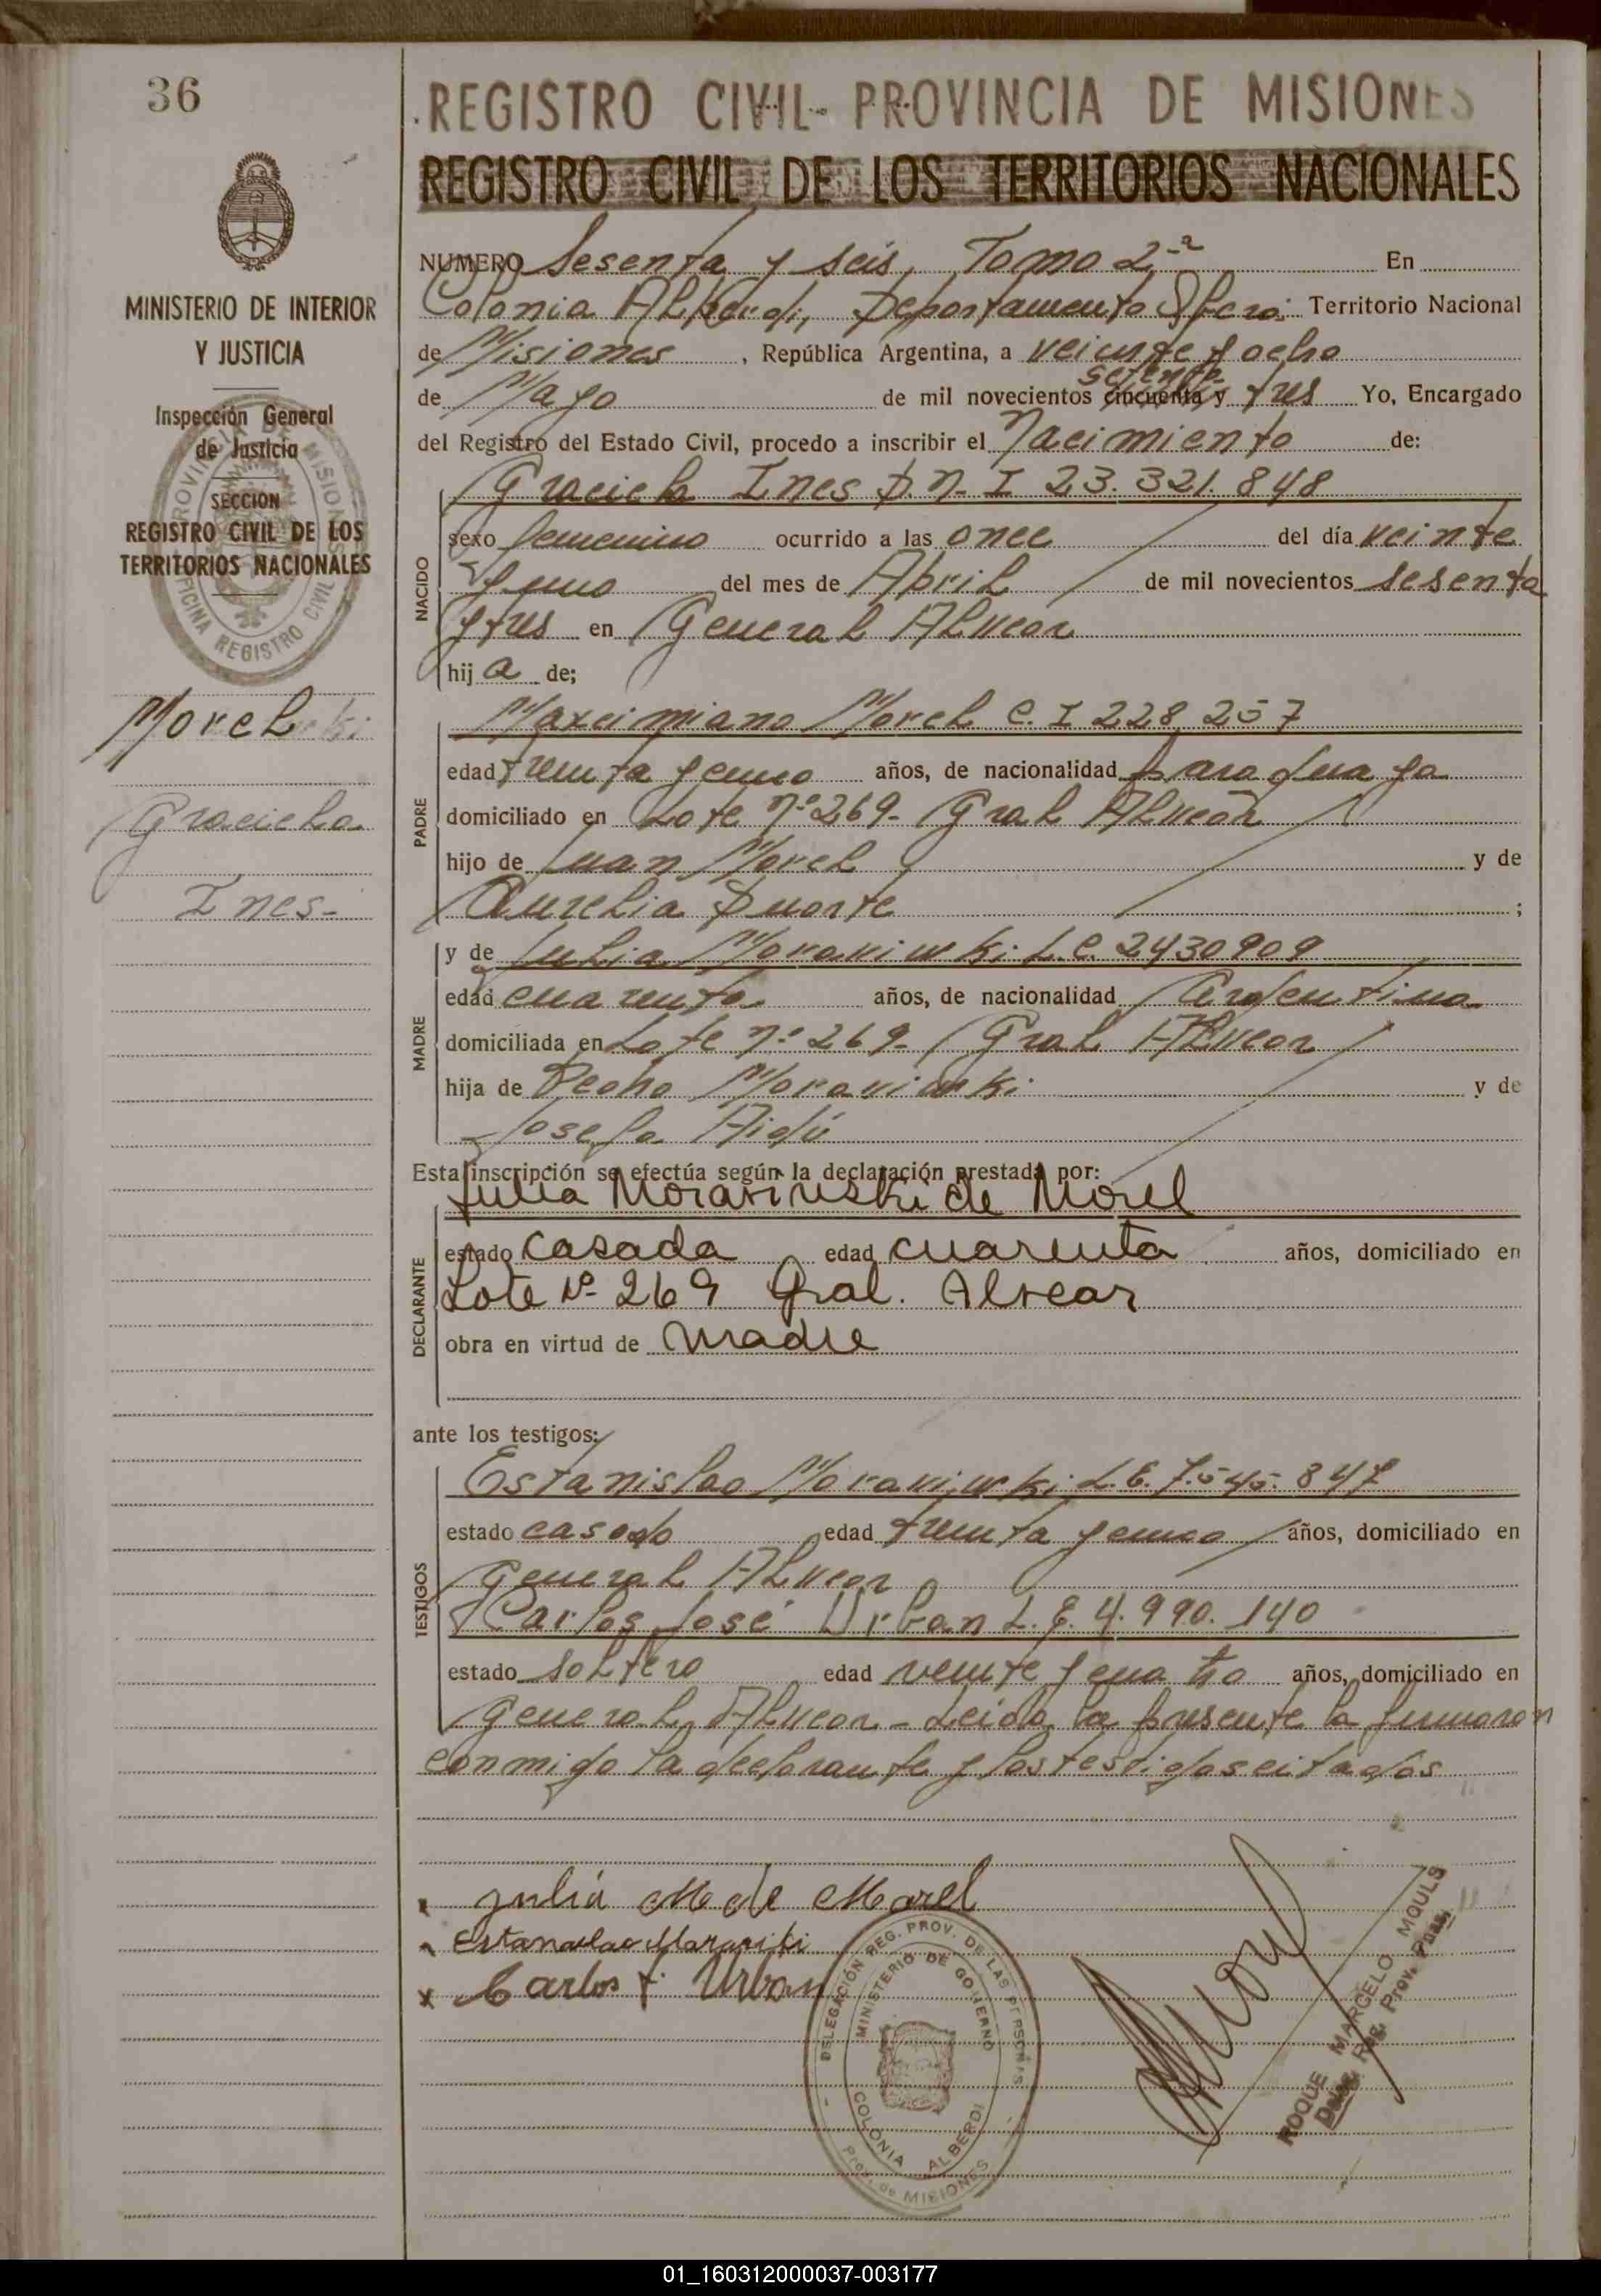 36
REGISTRO CIVIL- PROVINCIA DE MISIONES
REGISTRO CIVIL DE LOS TERRITORIOS NACIONALES
MINISTERIO DE INTERIOR
Y JUSTICIA
Inspección General
de Justicia
SECCION
REGISTRO CIVIL DE LOS
TERRITORIOS NACIONALES
PROVINCIA DE MISIONES
OFICINA REGISTRO CIVIL
Morel
Graciela
Ines-
NUMERO Sesenta y seis, Tomo 2-ª En
Colonia Alberdi, Departamento Territorio Nacional
de Misiones, República Argentina, a veinte y ocho
setenta
de Mayo de mil novecientos cincuenta y tres Yo, Encargado
del Registro del Estado Civil, procedo a inscribir el Nacimiento de:
NACIDO
Graciela Ines D.N.I 23.321.848
sexo femenino ocurrido a las once del día veinte
y uno del mes de Abril de mil novecientos sesenta
y tres en General Alvear
hija de;
PADRE
Maxcimiano Morel C.I 228 257
edad treinta y cinco años, de nacionalidad paraguaya
domiciliado en Lote Nº 269- Gral Alvear
hijo de Juan Morel y de
Aurelia Duarte ;
MADRE
y de Julia Moraviwski L.C. 2430909
edad cuarenta años, de nacionalidad Argentina
domiciliada en Lote Nº 269- Gral Alvear
hija de Pedro Moraviwski y de
Josefa
Esta inscripción se efectúa según la declaración prestada por:
DECLARANTE
Julia Moraviuski de Morel
estado casada edad cuarenta años, domiciliado en
Lote Nº 269 Gral. Alvear
obra en virtud de madre
ante los testigos:
TESTIGOS
Estanislao Moraviwski L.E. 7.545.847
estado casado edad treinta y cinco años, domiciliado en
General Alvear
Carlos José Urban L.E. 4.990.140
estado soltero edad veinte y cuatro años, domiciliado en
General Alvear - Leida la presente la firmaron
conmigo la declarante y los testigos citados
Julia M de Morel
Carlos J. Urban
DELEGACIÓN REG. PROV. DE LAS PERSONAS
MINISTERIO DE GOBIERNO
COLONIA ALBERDI
Prov. de MISIONES
ROQUE MARCELO MQULS
Deleg. Reg. Prov. Pers.
01_160312000037-003177